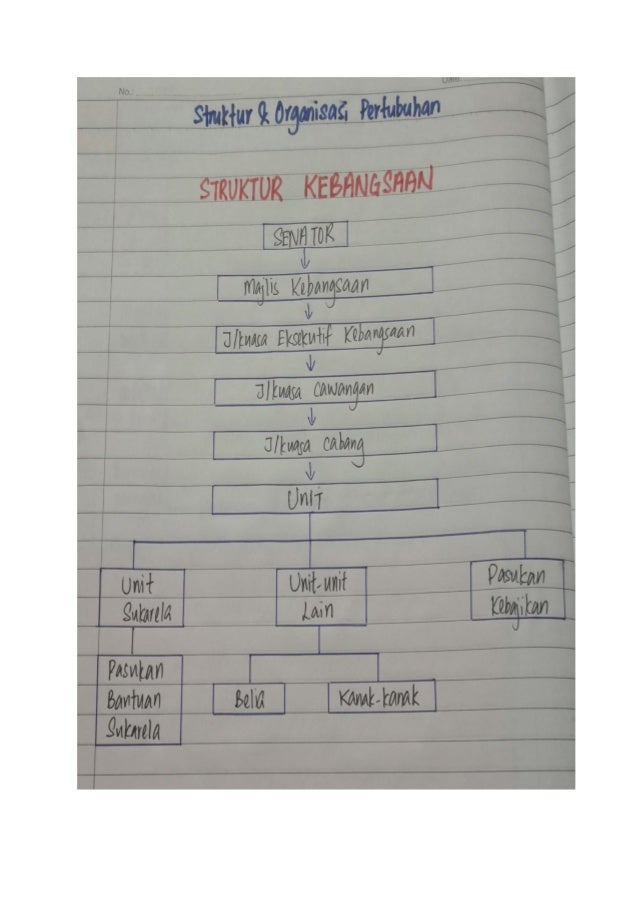 No.
Date
Struktur & Organisasi Pertubuhan
STRUKTUR KEBANGSAAN
SENATOR
Majlis Kebangsaan
J/kuasa Eksekutif Kebangsaan
J/kuasa Cawangan
J/kuasa Cabang
UNIT
Unit
Sukarela
Unit-unit
Lain
Pasukan
Kebajikan
Pasukan
Bantuan
Sukarela
Belia
Kanak-kanak